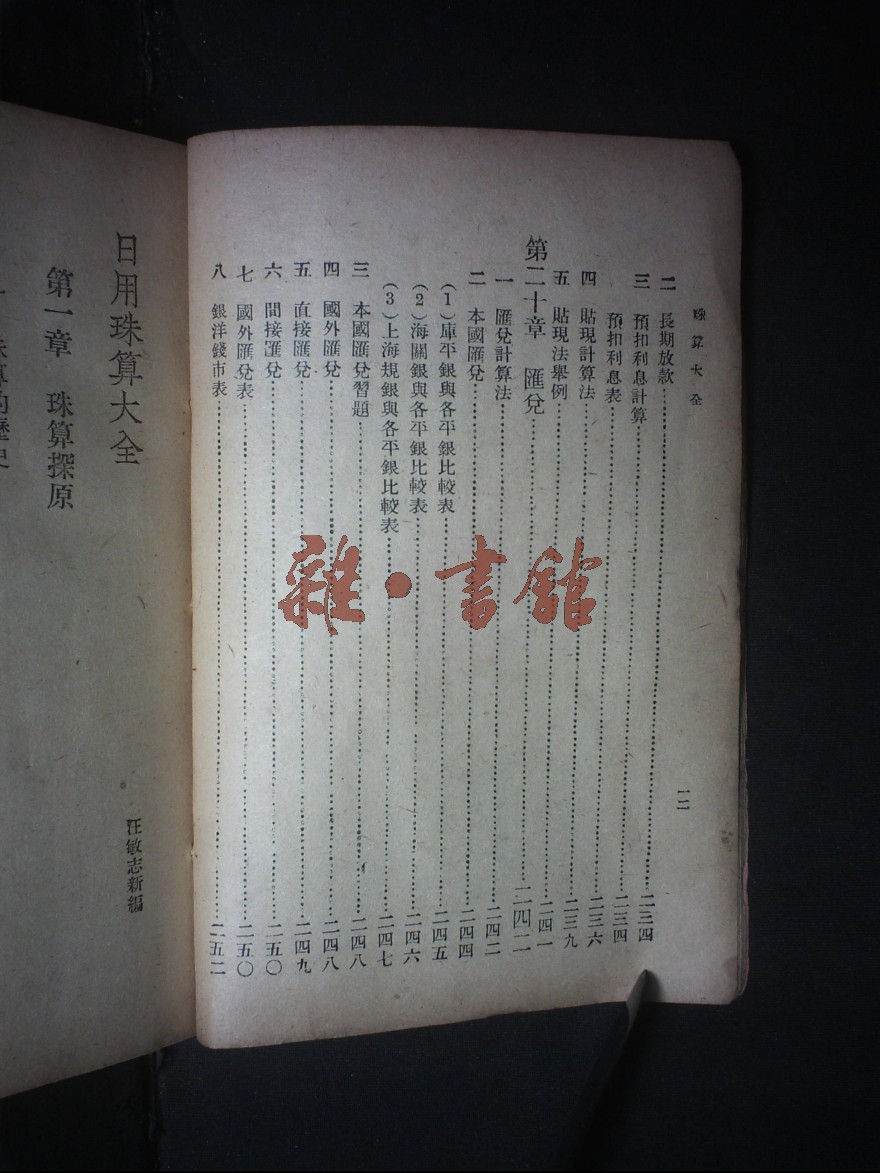 珠算大全
一二
二 長期放款……二三四
三 預扣利息計算……二三四
預扣利息表……二三六
四 貼現計算法……二三九
五 貼現法舉例……二四一
第二十章 匯兌……二四二
一 匯兌計算法……二四二
二 本國匯兌……二四四
(1)庫平銀與各平銀比較表……二四五
(2)海關銀與各平銀比較表……二四六
(3)上海規銀與各平銀比較表……二四七
三 本國匯兌習題……二四八
四 國外匯兌……二四八
五 直接匯兌……二四九
六 間接匯兌……二五〇
七 國外匯兌表……二五〇
八 銀洋錢市表……二五二
日用珠算大全
汪敏志新編
第一章 珠算探原
珠算的歷史
雜·書館